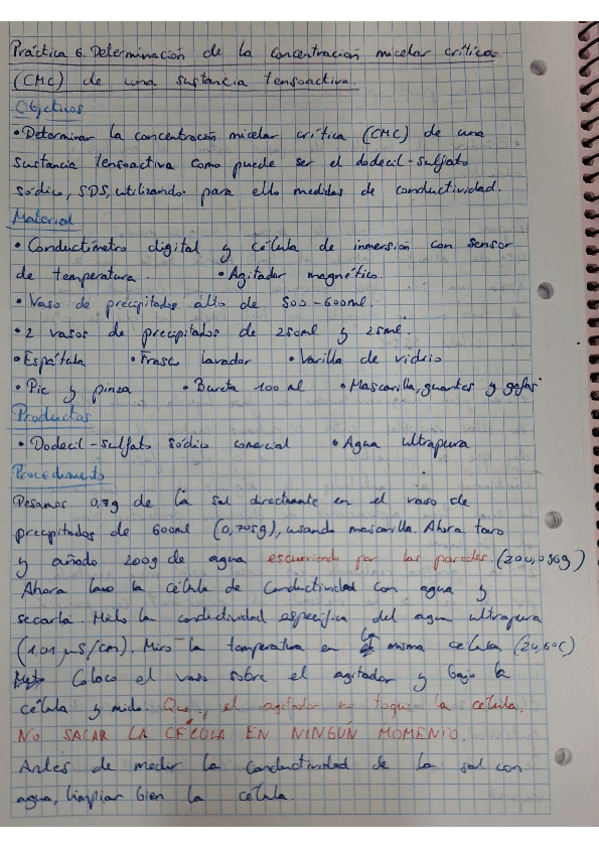 Práctica 6. Determinación de la concentración micelar crítica
(CMC) de una sustancia tensoactiva.
Objetivos
• Determinar la concentración micelar crítica (CMC) de una
sustancia tensoactiva como puede ser el dodecil-sulfato
sódico, SDS, utilizando para ello medidas de conductividad.
Material
• Conductímetro digital y célula de inmersión con sensor
de temperatura. • Agitador magnético.
• Vaso de precipitados alto de 500-600ml.
• 2 vasos de precipitados de 250ml y 25ml.
• Espátula • Frasco lavador • Varilla de vidrio
• Pie y pinza • Bureta 100 ml • Mascarilla, guantes y gafas
Productos
• Dodecil-sulfato sódico comercial • Agua ultrapura
Procedimiento
Pesamos 0,7g de la sal directamente en el vaso de
precipitados de 600ml (0,705g), usando mascarilla. Ahora taro
y añado 200g de agua escurriendo por las paredes. (200,036g)
Ahora lavo la célula de conductividad con agua y
secarla. Mido la conductividad específica del agua ultrapura
(1,01 µS/cm). Miro la temperatura en la misma célula (20,6ºC)
Coloco el vaso sobre el agitador y bajo la
célula y mido. Que el agitador no toque la célula.
NO SACAR LA CÉLULA EN NINGÚN MOMENTO.
Antes de medir la conductividad de la sal con
agua, limpiar bien la célula.